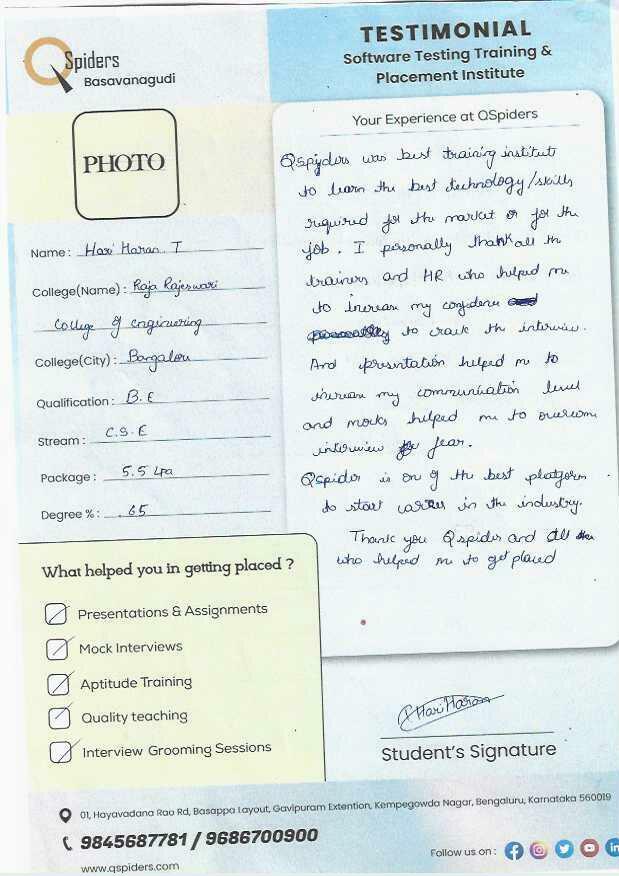 QSpiders
Basavanagudi
TESTIMONIAL
Software Testing Training &
Placement Institute
PHOTO
Name : Hari Haran. T
College(Name) : Raja Rajeswari
College of engineering
College(City) : Bangalou
Qualification : B.E
Stream : C.S.E
Package : 5.5 Lpa
Degree % : 65
Your Experience at QSpiders
Qspyders was best training institute
to learn the best technology/skills
required for the market or for the
job. I personally thank all the
trainers and HR who helped me
to increase my confidence
to crack the interview.
And presentation helped me to
increase my communication level
and mocks helped me to overcome
interview fear.
Qspider is on of the best platform
to start carrer in the industry.
Thank you Qspider and all
who helped me to get placed
What helped you in getting placed ?
Presentations & Assignments
Mock Interviews
Aptitude Training
Quality teaching
Interview Grooming Sessions
T Hari Haran
Student's Signature
01, Hayavadana Rao Rd, Basappa Layout, Gavipuram Extention, Kempegowda Nagar, Bengaluru, Karnataka 560019
9845687781 / 9686700900
www.qspiders.com
Follow us on :